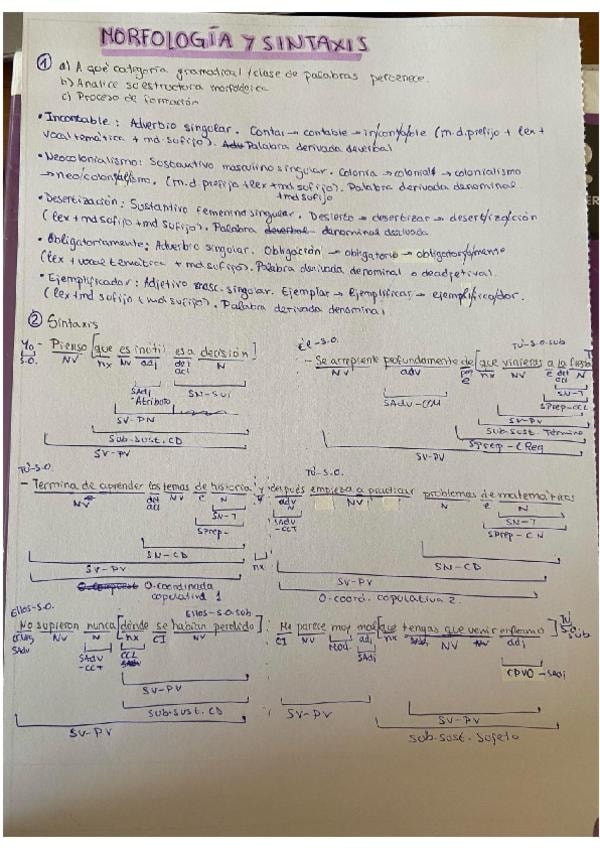 MORFOLOGÍA Y SINTAXIS
① a) A qué categoría gramatical /clase de palabras pertenece.
b) Analice su estructura morfológica
c) Proceso de formación
• Incontable: Adverbio singular. Contar → contable → in/cont/a/ble (m.d. prefijo + lex +
vocal temática + md sufijo). Palabra derivada deverbal
• Neocolonialismo: Sustantivo masculino singular. Colonia → colonial → colonialismo
→ neo/colonialismo. (m.d prefijo + lex + md sufijo). Palabra derivada denominal
+ md sufijo
• Desertización: Sustantivo femenino singular. Desierto → desertizar → desert/iza/ción
(lex + md sufijo + md sufijo). Palabra denominal derivada
• Obligatoriamente: Adverbio singular. Obligación → obligatorio → obligatoriamente
(lex + vocal temática + md sufijo). Palabra derivada denominal o deadjetival.
• Ejemplificador: Adjetivo masc. singular. Ejemplar → Ejemplificar → ejemplificador.
(lex + md sufijo + md sufijo). Palabra derivada denominal
② Sintaxis
Yo - Pienso [que es inútil esa decisión]
S.O. NV nx NV adj det N
act
SAdj SN-SUJ
-Atributo
SV-PN
Sub. Sust. CD
SV-PV
Él-S.O. Tú-S.O.SUB
- Se arrepiente profundamente de [que vinieras a la fiesta]
NV adv nx NV e det N
act
SAdv-CCM SN-T
SPrep-CCL
SV-PV
Sub. Sust. Término
SPrep-CReg
SV-PV
Tú-S.O. Tú-S.O.
- Termina de aprender los temas de historia y después empieza a practicar problemas de matemáticas
NV det N e N adv NV N e N
act
SN-T SAdv SN-T
-CCT
SPrep- SPrep-CN
SN-CD nx SN-CD
SV-PV SV-PV
O. coordinada O. coord. copulativa 2.
copulativa 1
Ellos-S.O. Ellos-S.O.sub
No supieron nunca [dónde se habían perdido]
NV N nx CI NV
SAdv SAdv CCL
-CCT
SV-PV
Sub. Sust. CD
SV-PV
Me parece muy mal [que tengas que venir enfermo] Tú
CI NV adj nx NV adj S.O.
Sub
Mod. SAdj
CPVO-SAdj
SV-PV SV-PV
Sub. Sust. Sujeto